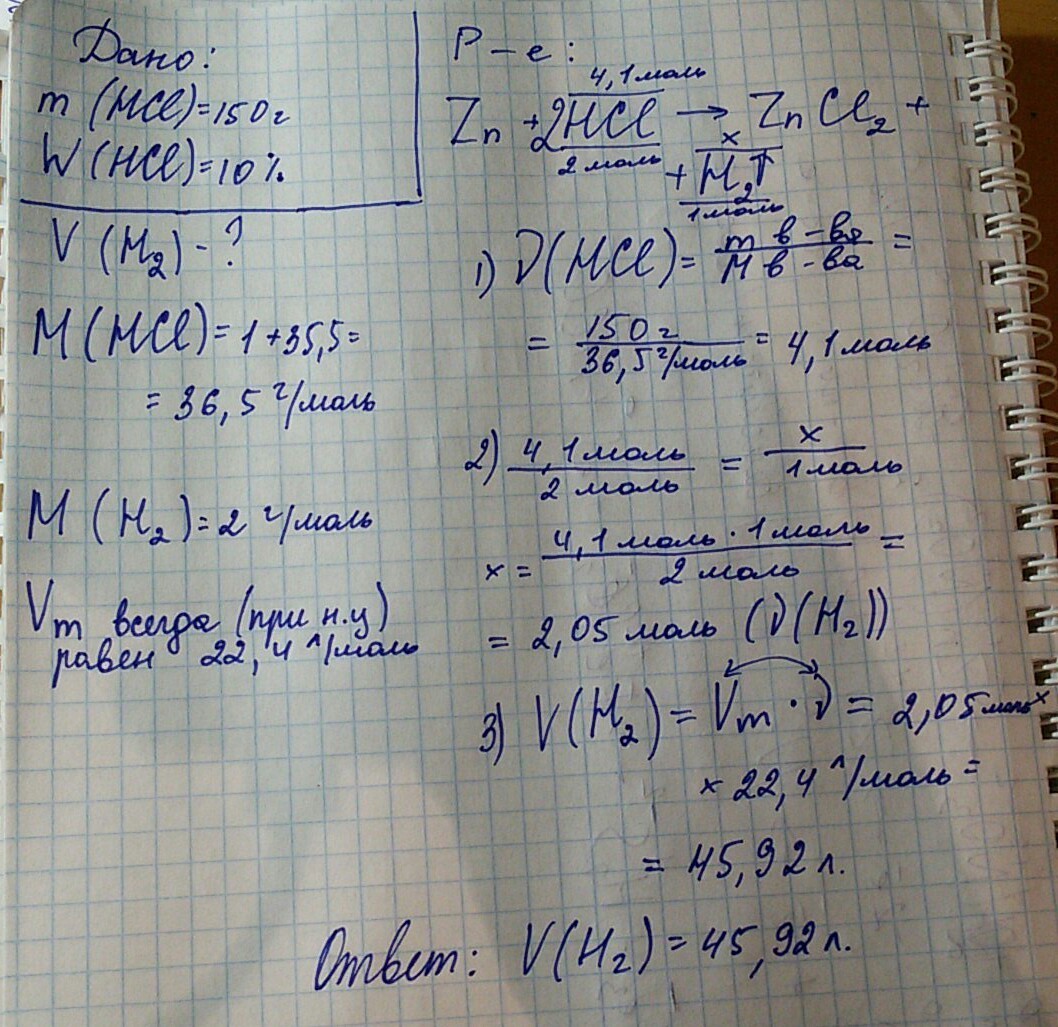 Дано:
m (HCl)=150г
W (HCl)=10%
V (H₂) - ?
M (HCl)= 1+35,5=
= 36,5 г/моль
M (H₂)=2 г/моль
Vm всегда (при н.у)
равен 22,4 л/моль
Р-е:
4,1 моль
Zn + 2HCl → ZnCl₂ +
2 моль x
+ H₂↑
1 моль
1) ν(HCl)= m в-ва / M в-ва =
= 150 г / 36,5 г/моль = 4,1 моль
2) 4,1 моль / 2 моль = x / 1 моль
x = 4,1 моль · 1 моль / 2 моль =
= 2,05 моль (ν(H₂))
3) V(H₂) = Vm · ν = 2,05 моль x
x 22,4 л/моль =
= 45,92 л.
Ответ: V(H₂)=45,92 л.